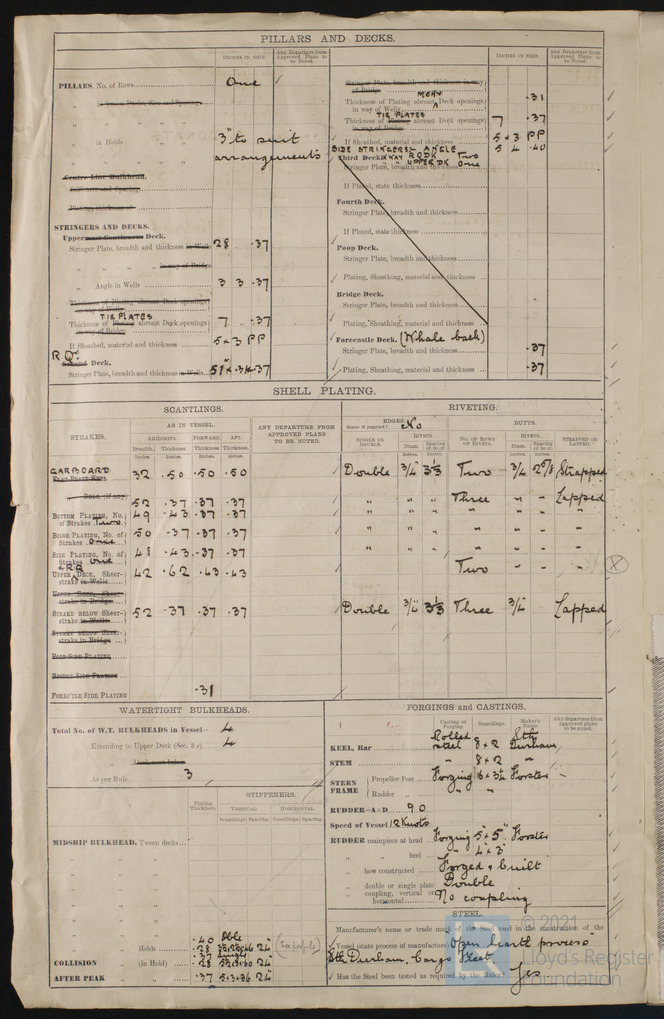 PILLARS AND DECKS.
INCHES IN SHIP.
Any Departure from Approved Plans to be Noted.
PILLARS, No. of Rows
One
in Holds
3" to suit
arrangements
Centre Line Bulkhead.
STRINGERS AND DECKS.
Uppermost Continuous Deck.
Stringer Plate, breadth and thickness in Wells 28 .37
" " " " in way of Bridge
" Angle in Wells 3 3 .37
Thickness of Plating abreast Deck openings in way of Wells
TIE PLATES
Thickness of Plating abreast Deck openings in way of Bridge 7 .37
If Sheathed, material and thickness 5 x 3 PP
RQ.
Second Deck.
Stringer Plate, breadth and thickness in Wells
INCHES IN SHIP.
Any Departure from Approved Plans to be Noted.
Stringer Plate, breadth and thickness in way of Bridge
Thickness of Plating abreast Deck openings in way of Wells .31
TIE PLATES
Thickness of Plating abreast Deck openings in way of Bridge 7 .37
If Sheathed, material and thickness 5 x 3 PP
SIDE STRINGERS ANGLE 5 4 .40
Third Deck. WAY RQDK Two
" " UPPER DK One
Stringer Plate, breadth and thickness
If Plated, state thickness
Fourth Deck.
Stringer Plate, breadth and thickness
If Plated, state thickness
Poop Deck.
Stringer Plate, breadth and thickness
Plating, Sheathing, material and thickness
Bridge Deck.
Stringer Plate, breadth and thickness
Plating, Sheathing, material and thickness
Forecastle Deck. (Whale back)
Stringer Plate, breadth and thickness .37
Plating, Sheathing, material and thickness .37
SHELL PLATING.
SCANTLINGS.
RIVETING.
STRAKES.
AS IN VESSEL.
AMIDSHIPS. FORWARD. AFT.
Breadth. Thickness. Thickness. Thickness.
Inches. Inches. Inches. Inches.
ANY DEPARTURE FROM APPROVED PLANS TO BE NOTED.
EDGES. No
State if joggled?
SINGLE OR DOUBLE.
RIVETS.
Diam. Spacing cr. to cr.
BUTTS.
NO. OF ROWS OF RIVETS.
RIVETS.
Diam. Spacing cr. to cr.
STRAPPED OR LAPPED.
GARBOARD
Flat Plate Keel 32 .50 .50 .50 Double 3/4 Two 3/4 2 5/8 Strapped
" Dblg. (if any) 52 .37 .37 .37 " " " Three " " Lapped
BOTTOM PLATING, No. of Strakes Two 49 .43 .37 .37 " " " " " " "
BILGE PLATING, No. of Strakes One 50 .37 .37 .37 " " " " " " "
SIDE PLATING, No. of Strakes One 48 .43 .37 .37 " " " " " " "
& RQ
UPPER DECK, Sheerstrake in Wells 42 .62 .43 .43 Two " " "
UPPER DECK, Sheerstrake in Bridge
STRAKE BELOW Sheerstrake in Wells 52 .37 .37 .37 Double 3/4 Three 3/4 Lapped
STRAKE BELOW Sheerstrake in Bridge
POOP SIDE PLATING
BRIDGE SIDE PLATING
FORE'C'TLE SIDE PLATING .31
WATERTIGHT BULKHEADS.
Total No. of W.T. BULKHEADS in Vessel— 4
Extending to Upper Deck (Sec. 3 c) 4
As per Rule 3
Plating Thickness.
STIFFENERS.
VERTICAL. HORIZONTAL.
Scantlings. Spacing. Scantlings. Spacing.
MIDSHIP BULKHEAD, Tween decks
" " Holds
COLLISION " (in Hold)
AFTER PEAK " " .37 5.3.36 24"
FORGINGS and CASTINGS.
Casting or Forging. Scantlings. Maker's Name. Any departure from approved plans to be noted.
KEEL, Bar Rolled steel 8 x 2 Sth Durham
STEM " 8 x 2 "
STERN FRAME
Propeller Post Forging Forster
Rudder " " "
RUDDER—A×D 90
Speed of Vessel 12 Knots
RUDDER mainpiece at head Forging 5" x 5" Forster
" " heel " 4 x 3
" how constructed Forged & built
" double or single plate Double
" coupling, vertical or horizontal No coupling
STEEL.
Manufacturer's name or trade mark of the Steel used in the construction of the
Vessel (state process of manufacture) Open hearth process
Sth Durham, Cargo Fleet.
Has the Steel been tested as required by the Rules? Yes
© 2021
Lloyd's Register
Foundation